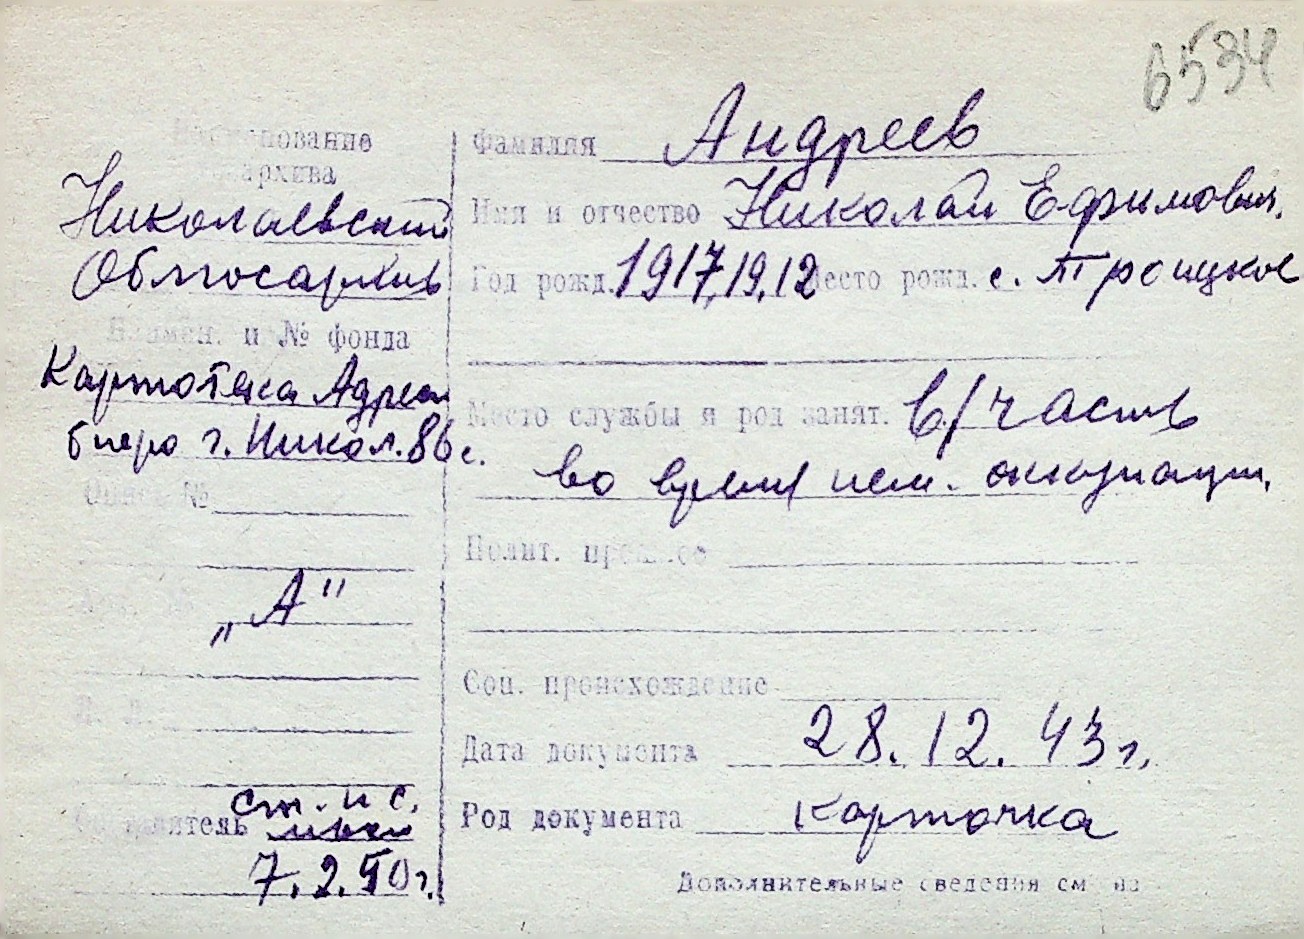 6534
Наименование
архива
Николаевский
Облгосархив
Наимен. и № фонда
Картотека Адресн
бюро г. Никол. 86 с.
Опись №
„А"
Л. Л.
Составитель ст. н с.
7.2.50г.
Фамилия Андреев
Имя и отчество Николай Ефимович.
Год рожд. 1917,19.12 Место рожд. с. Троицкое
Место службы и род занят. в/часть
во время нем. оккупации.
Полит. прошлое
Соц. происхождение
Дата документа 28.12.43г.
Род документа карточка
Дополнительные сведения см на